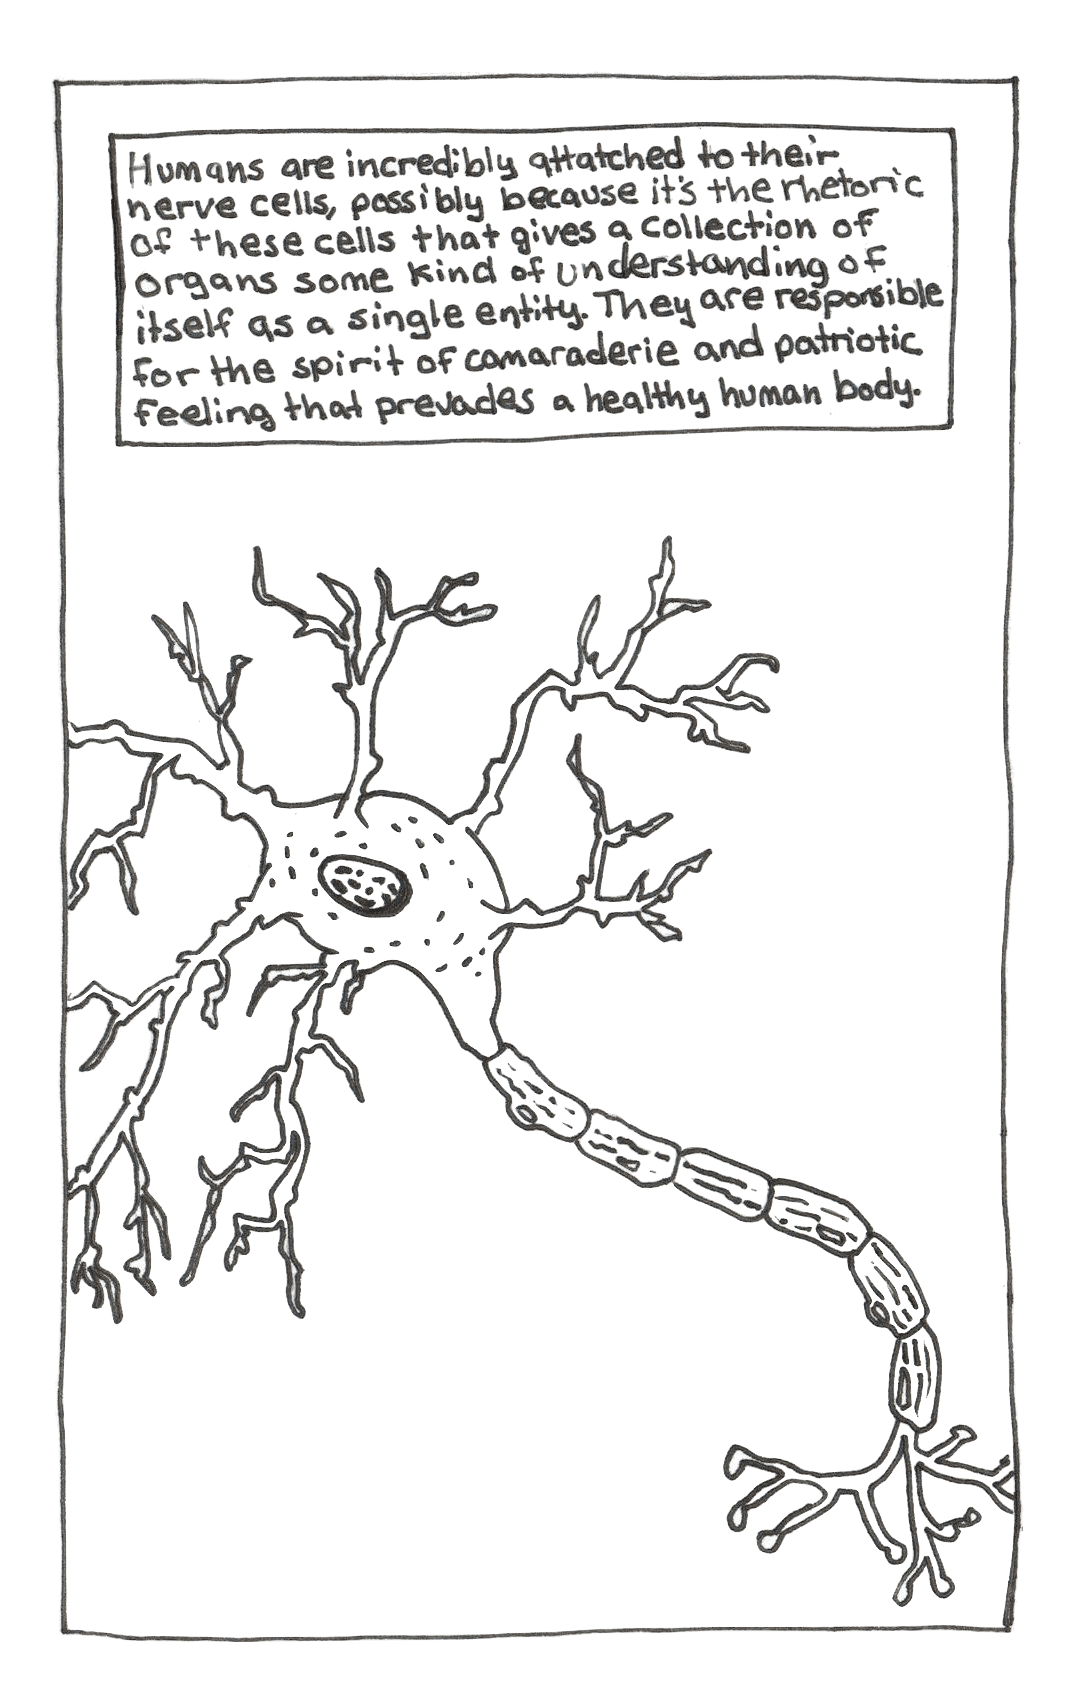 Humans are incredibly attatched to their
nerve cells, possibly because it's the rhetoric
of these cells that gives a collection of
organs some kind of understanding of
itself as a single entity. They are responsible
for the spirit of camaraderie and patriotic
feeling that prevades a healthy human body.